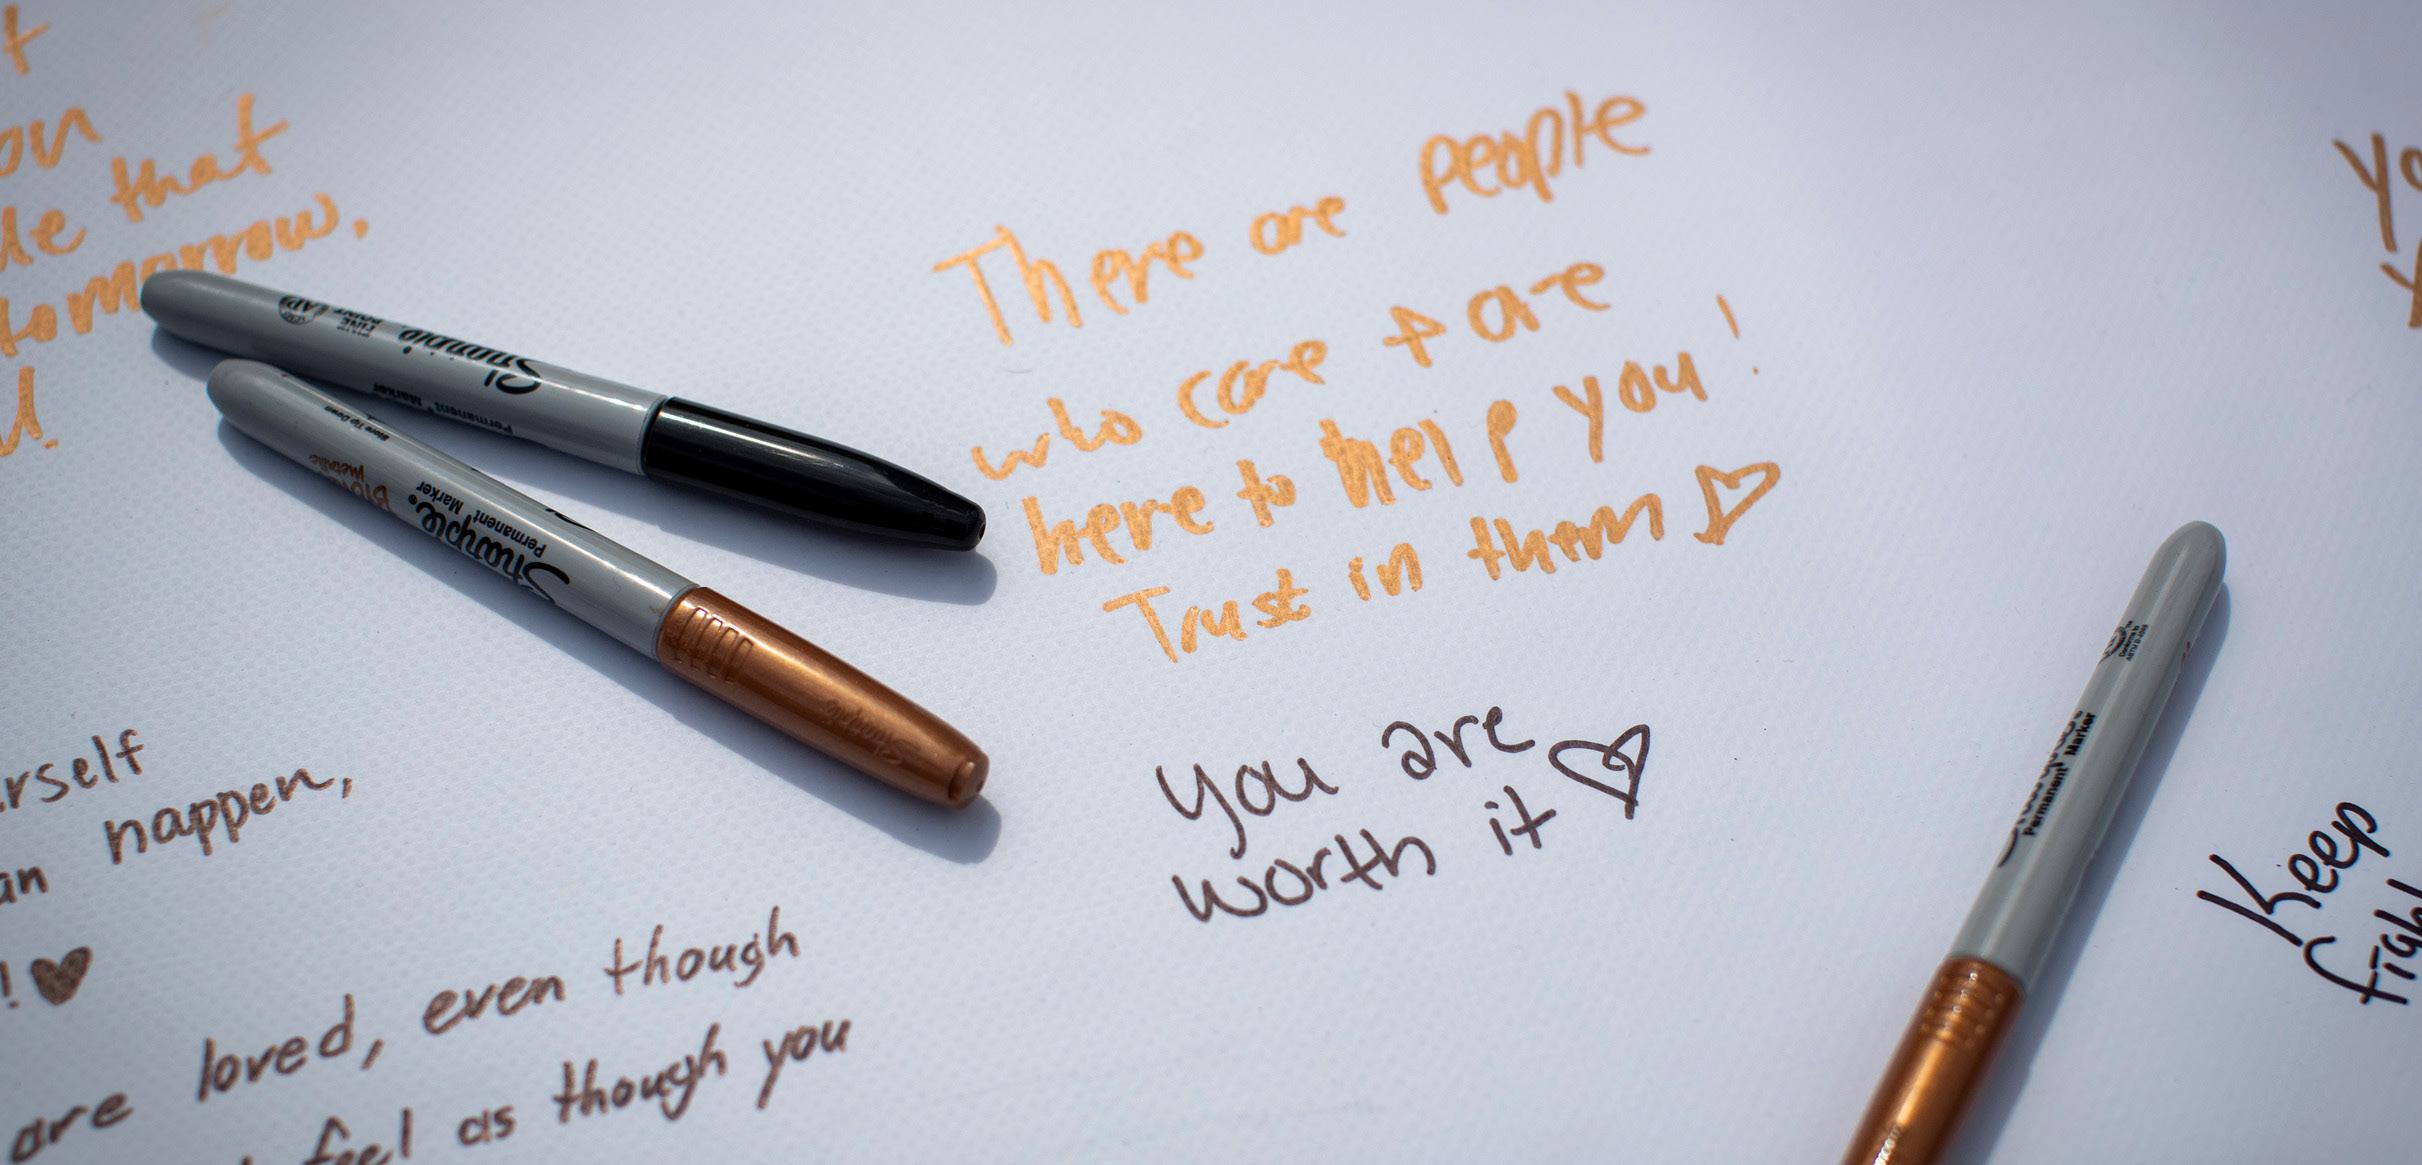 t
on
de that
tomorrow.
d.
There are people
who care + are
here to help you!
Trust in them
You are
worth it
rself
an happen,
!
are loved, even though
feel as though you
Keep
figh
Yo
Y
Sharpie
Permanent Marker
FINE POINT
Sharpie
Permanent Marker
Metallic
Store Tip Down
Sharpie
Permanent Marker